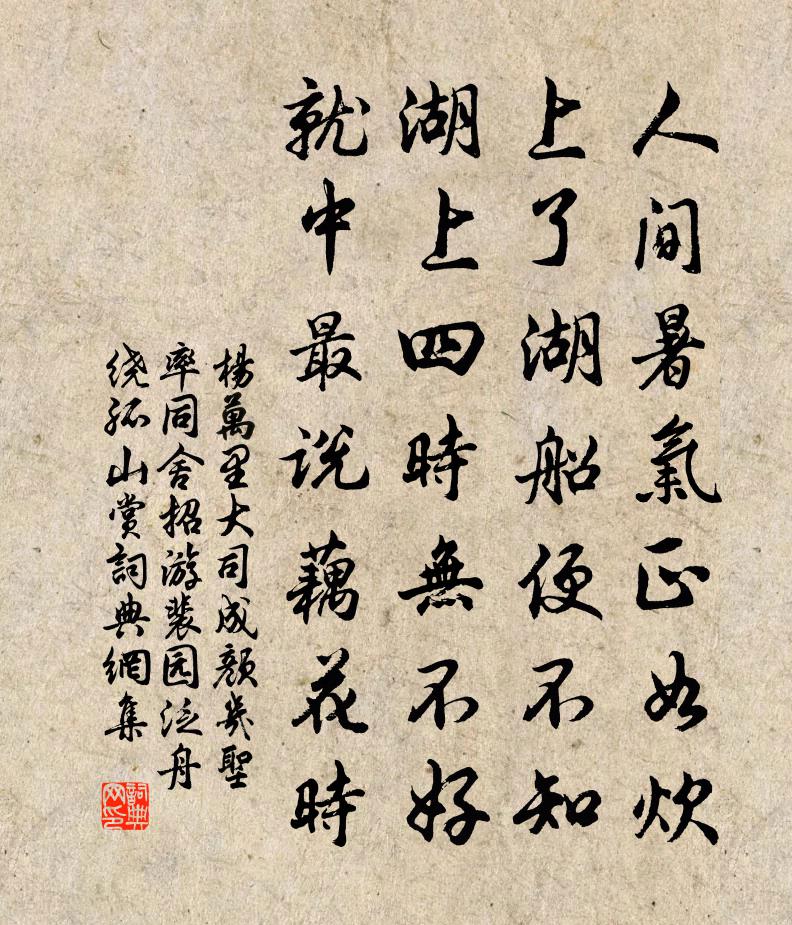 人間暑氣正如炊
上了湖船便不知
湖上四時無不好
就中最说藕花時
楊萬里大司成颜幾聖
率同舍招游裴园泛舟
绕孤山赏詞典網集
詞典
网印